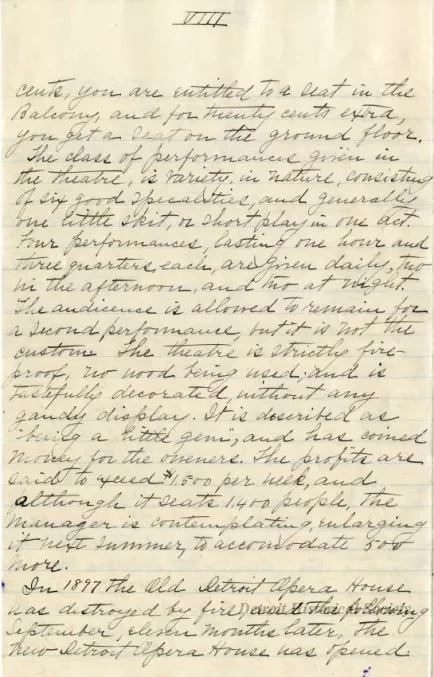 VIII
cents, you are entitled to a seat in the
Balcony, and for twenty cents extra,
you get a seat on the ground floor.
The class of performances given in
the theatre, is variety, in nature, consisting
of six good specialties, and generally
one little skit, or short play in one act.
Four performances, lasting one hour and
three quarters, each, are given daily, two
in the afternoon, and two at night.
The audience is allowed to remain for
a second performance, but it is not the
custom. The theatre is strictly fire-
proof, no wood being used, and is
tastefully decorated, without any
gaudy display. It is described as
"being a little gem", and has coined
money for the owners. The profits are
said to exceed $1,500 per week, and
although it seats 1400 people, the
manager is contemplating, enlarging
it next summer, to accomodate 500
more.
In 1897 the Old Detroit Opera House
was destroyed by fire, and the following
September, eleven months later, the
new Detroit Opera House was opened.